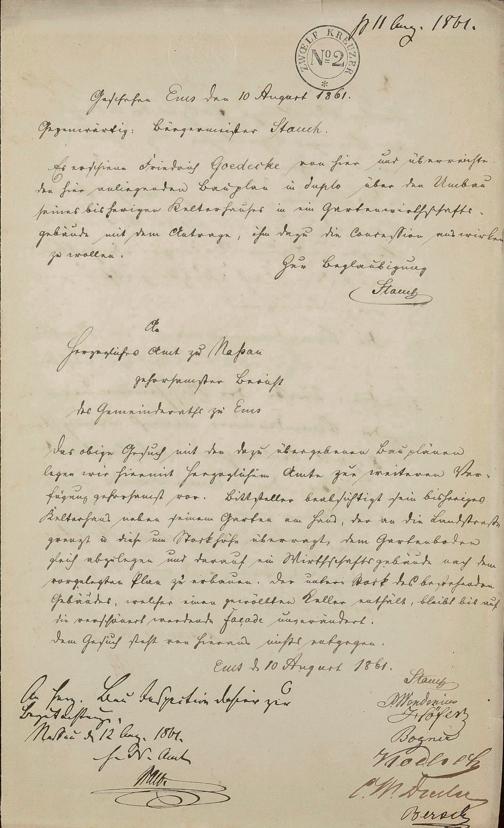 pr 11 Aug. 1861.
ZWOELF KREUZER
No 2
Geschehen Ems den 10 August 1861.
Gegenwärtig: Bürgermeister Stauch.
Es erschien Friedrich Goedecke von hier und überreichte
den hier anliegenden Bauplan in duplo über den Umbau
seines bisherigen Kelterhauses in ein Gartenwirthschafts-
gebäude mit dem Antrage, ihm dazu die Concession auswirken
zu wollen.
Zur Beglaubigung
Stauch
An
Herzogliches Amt zu Naßau
gehorsamster Bericht
des Gemeinderaths zu Ems
Das obige Gesuch mit den dazu übergebenen Bauplänen
legen wir hiermit Herzoglichem Amte zur weiteren Ver-
fügung gehorsamst vor. Bittsteller beabsichtigt sein bisheriges
Kelterhaus neben seinem Garten am Haus, der an die Landstraße
grenzt u diese um Stockhöhe überragt, dem Gartenboden
gleich abzulegen und darauf ein Wirthschaftsgebäude nach dem
vorgelegten Plan zu erbauen. Der untere Stock des bestehenden
Gebäudes, welcher einen gewölbten Keller enthält, bleibt bis auf
die verschönert werdende Façade unverändert.
Dem Gesuch steht von hieraus nichts entgegen.
Ems d 10 August 1861.
Stauch
An Herz. Bau Inspection dahier zur
Begutachtung.
Nassau d 12 Aug. 1861.
H. N. Amt
Bogner